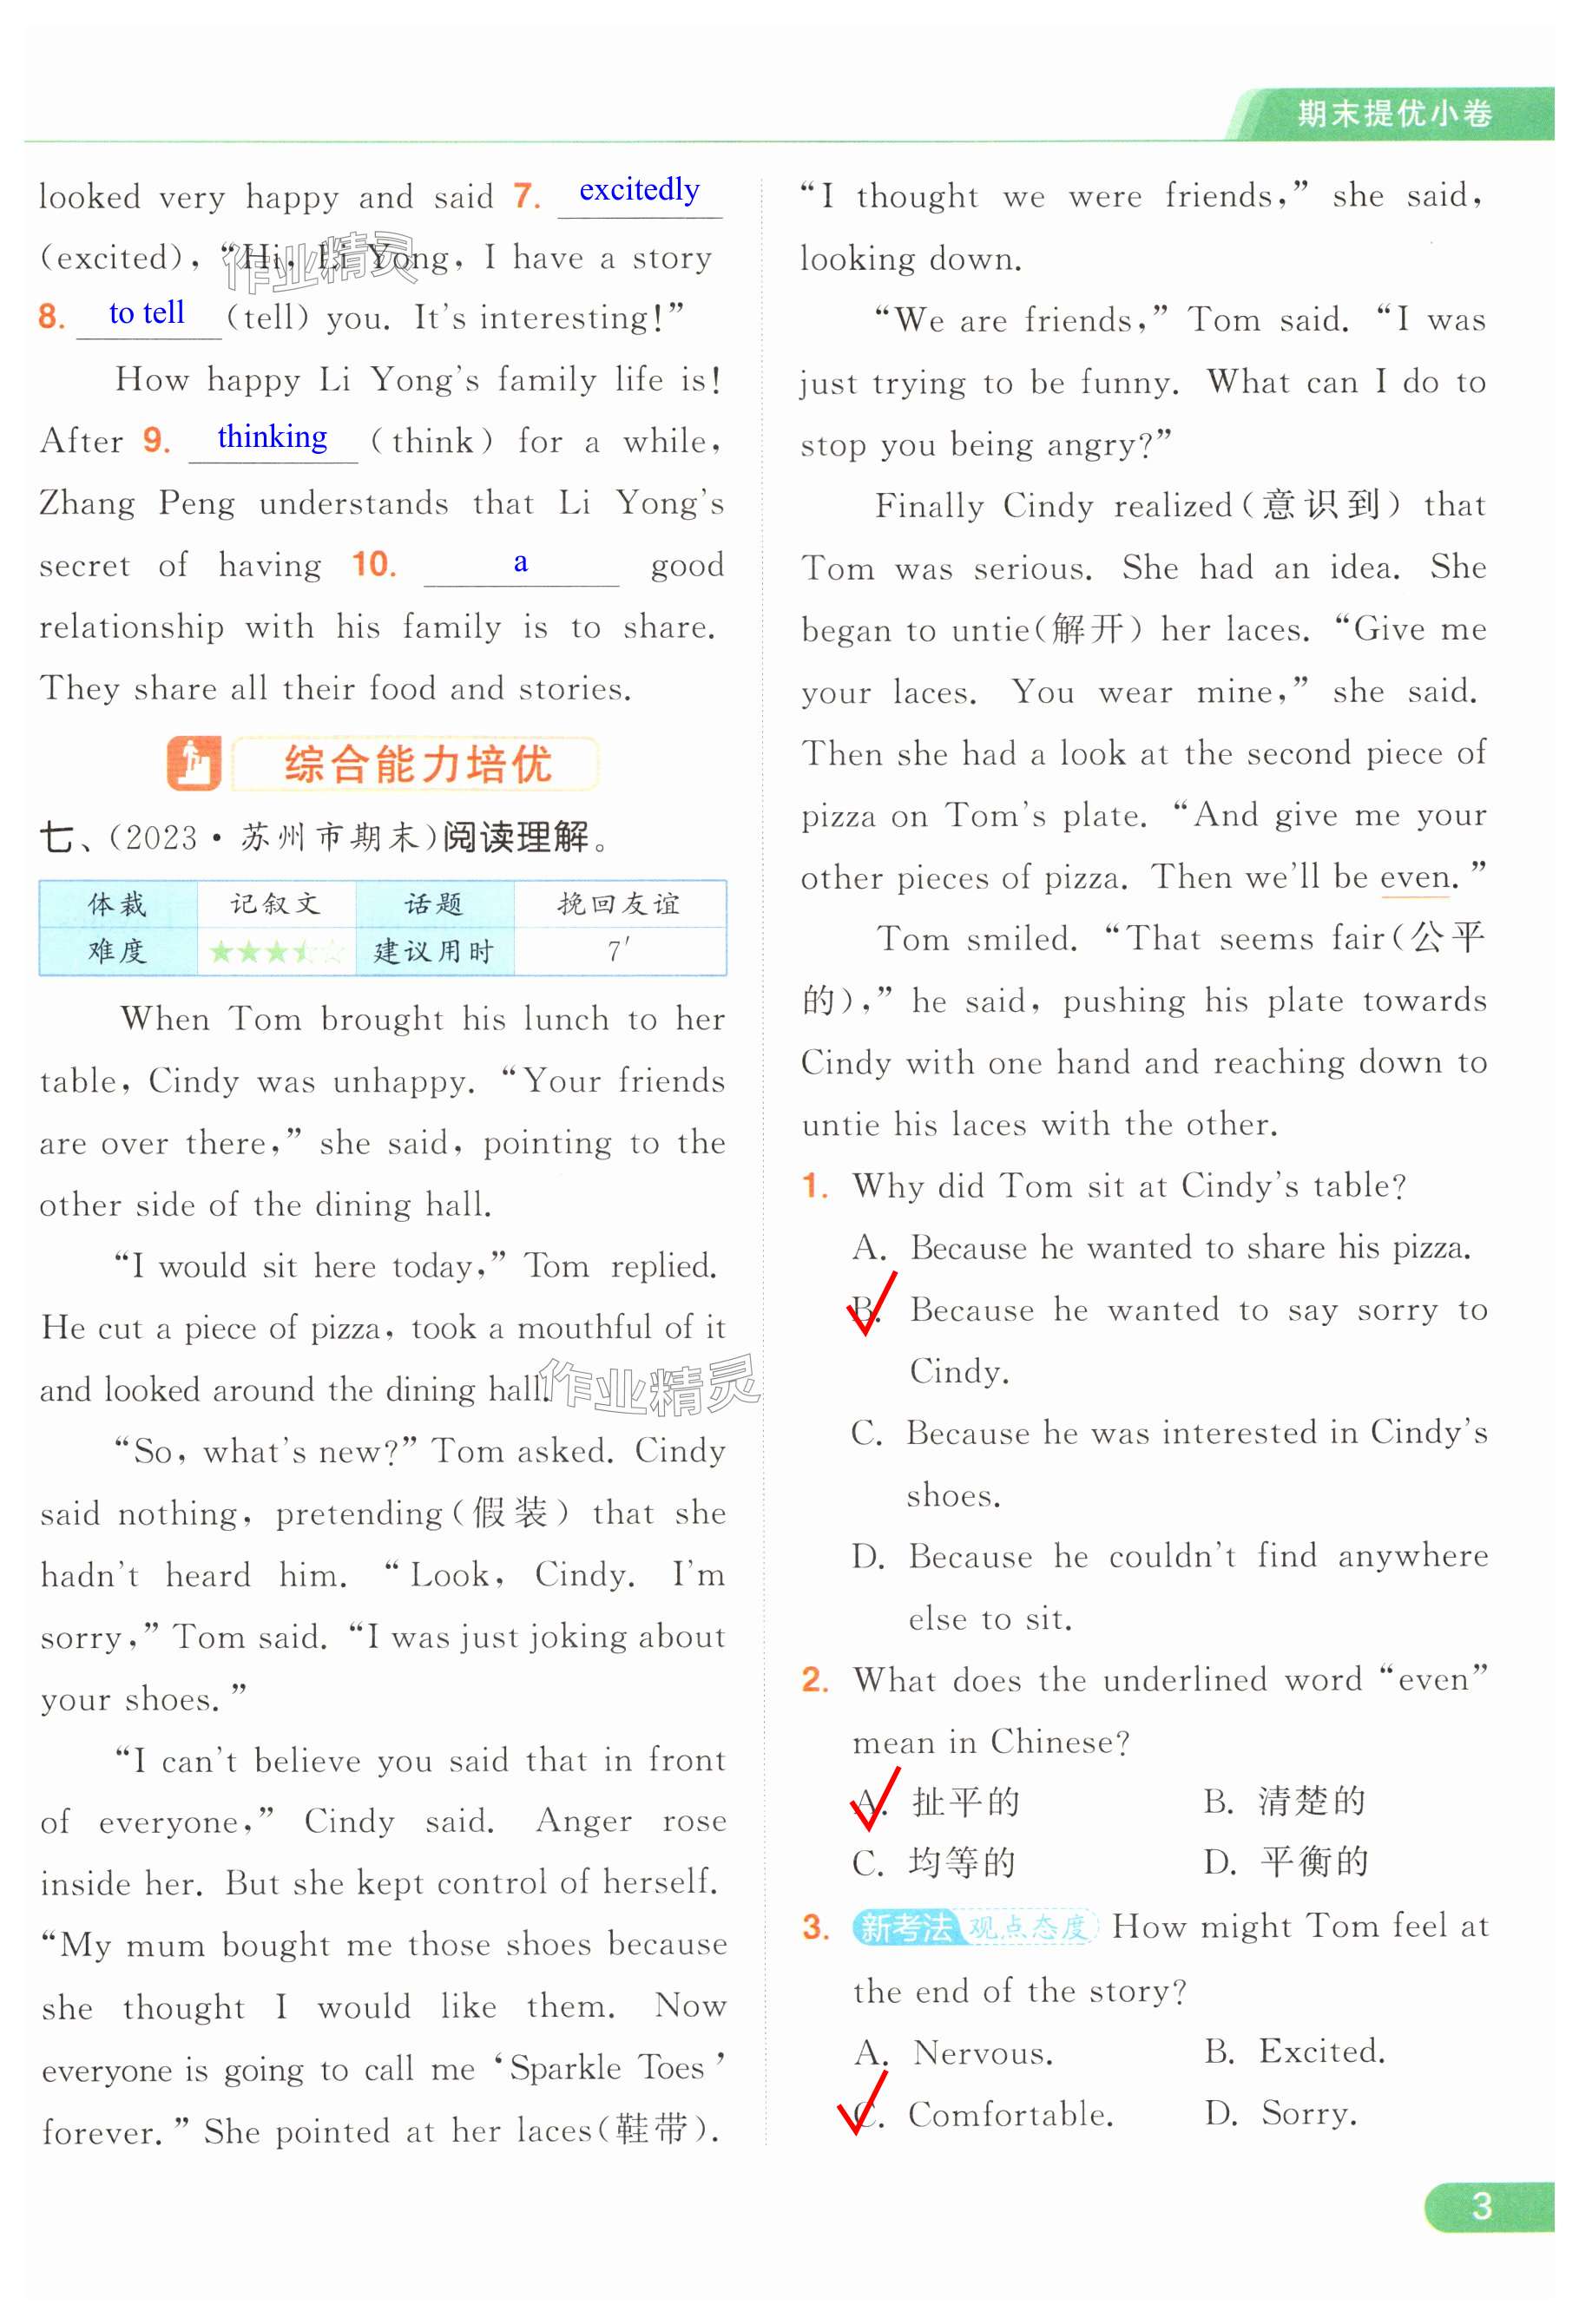 期末提优小卷
looked very happy and said 7. excitedly
(excited), “Hi, Li Yong, I have a story
8. to tell (tell) you. It's interesting!”
How happy Li Yong's family life is!
After 9. thinking (think) for a while,
Zhang Peng understands that Li Yong's
secret of having 10. a good
relationship with his family is to share.
They share all their food and stories.
综合能力培优
七、(2023·苏州市期末)阅读理解。
体裁 记叙文 话题 挽回友谊
难度 ★★★ 建议用时 7′
When Tom brought his lunch to her
table, Cindy was unhappy. “Your friends
are over there,” she said, pointing to the
other side of the dining hall.
“I would sit here today,” Tom replied.
He cut a piece of pizza, took a mouthful of it
and looked around the dining hall.
“So, what's new?” Tom asked. Cindy
said nothing, pretending(假装) that she
hadn't heard him. “Look, Cindy. I'm
sorry,” Tom said. “I was just joking about
your shoes.”
“I can't believe you said that in front
of everyone,” Cindy said. Anger rose
inside her. But she kept control of herself.
“My mum bought me those shoes because
she thought I would like them. Now
everyone is going to call me ‘Sparkle Toes’
forever.” She pointed at her laces(鞋带).
“I thought we were friends,” she said,
looking down.
“We are friends,” Tom said. “I was
just trying to be funny. What can I do to
stop you being angry?”
Finally Cindy realized(意识到) that
Tom was serious. She had an idea. She
began to untie(解开) her laces. “Give me
your laces. You wear mine,” she said.
Then she had a look at the second piece of
pizza on Tom's plate. “And give me your
other pieces of pizza. Then we'll be even.”
Tom smiled. “That seems fair(公平
的),” he said, pushing his plate towards
Cindy with one hand and reaching down to
untie his laces with the other.
1. Why did Tom sit at Cindy's table?
A. Because he wanted to share his pizza.
B. Because he wanted to say sorry to
Cindy.
C. Because he was interested in Cindy's
shoes.
D. Because he couldn't find anywhere
else to sit.
2. What does the underlined word “even”
mean in Chinese?
A. 扯平的 B. 清楚的
C. 均等的 D. 平衡的
3. 新考法 观点态度 How might Tom feel at
the end of the story?
A. Nervous. B. Excited.
C. Comfortable. D. Sorry.
3
作业精灵
作业精灵